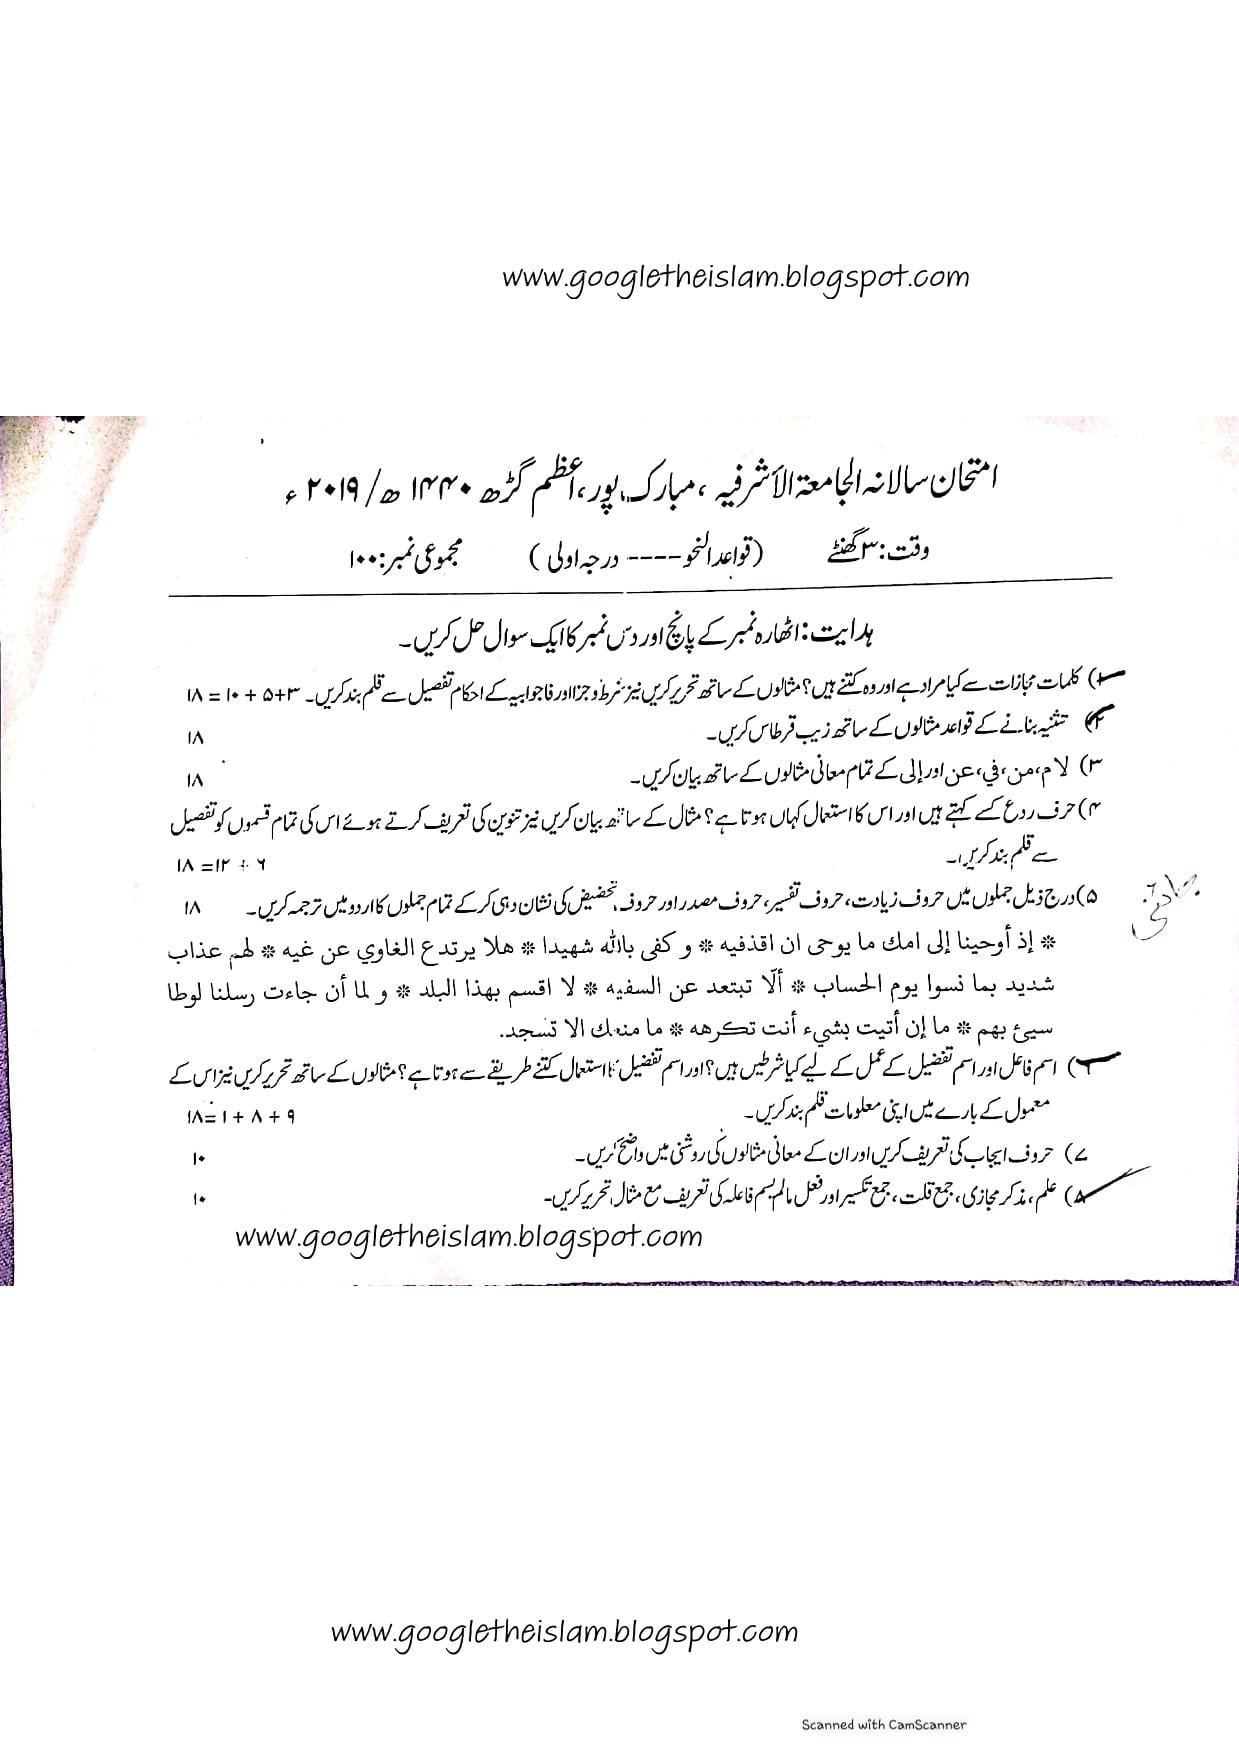 www.googletheislam.blogspot.com
امتحان سالانہ الجامعۃ الأشرفیہ، مبارک پور، اعظم گڑھ ۱۴۴۰ھ/ ۲۰۱۹ء
وقت: ۳ گھنٹے (قواعد النحو ---- درجہ اولی) مجموعی نمبر: ۱۰۰
ہدایت: اٹھارہ نمبر کے پانچ اور دس نمبر کا ایک سوال حل کریں۔
۱) کلمات مجازات سے کیا مراد ہے اور وہ کتنے ہیں؟ مثالوں کے ساتھ تحریر کریں نیز شرط و جزا اور فا جوابیہ کے احکام تفصیل سے قلم بند کریں۔ ۳+۵ + ۱۰ = ۱۸
۲) تثنیہ بنانے کے قواعد مثالوں کے ساتھ زیب قرطاس کریں۔ ۱۸
۳) لام، من، في، عن اور إلی کے تمام معانی مثالوں کے ساتھ بیان کریں۔ ۱۸
۴) حرف ردع کسے کہتے ہیں اور اس کا استعمال کہاں ہوتا ہے؟ مثال کے ساتھ بیان کریں نیز تنوین کی تعریف کرتے ہوئے اس کی تمام قسموں کو تفصیل
سے قلم بند کریں۔ ۶ + ۱۲= ۱۸
۵) درج ذیل جملوں میں حروف زیادت، حروف تفسیر، حروف مصدر اور حروف تحضیض کی نشان دہی کر کے تمام جملوں کا اردو میں ترجمہ کریں۔ ۱۸
* إذ أوحينا إلى امك ما يوحى ان اقذفيه * و كفى بالله شهيدا * هلا يرتدع الغاوي عن غيه * لهم عذاب
شديد بما نسوا يوم الحساب * ألّا تبتعد عن السفيه * لا اقسم بهذا البلد * و لما أن جاءت رسلنا لوطا
سيئ بهم * ما إن أتيت بشيء أنت تكرهه * ما منعك الا تسجد.
۶) اسم فاعل اور اسم تفضیل کے عمل کے لیے کیا شرطیں ہیں؟ اور اسم تفضیل کا استعمال کتنے طریقے سے ہوتا ہے؟ مثالوں کے ساتھ تحریر کریں نیز اس کے
معمول کے بارے میں اپنی معلومات قلم بند کریں۔ ۹ + ۸ + ۱ =۱۸
۷) حروف ایجاب کی تعریف کریں اور ان کے معانی مثالوں کی روشنی میں واضح کریں۔ ۱۰
۸) علم، مذکر مجازی، جمع قلت، جمع تکسیر اور فعل مالم یسم فاعلہ کی تعریف مع مثال تحریر کریں۔ ۱۰
www.googletheislam.blogspot.com
www.googletheislam.blogspot.com
Scanned with CamScanner